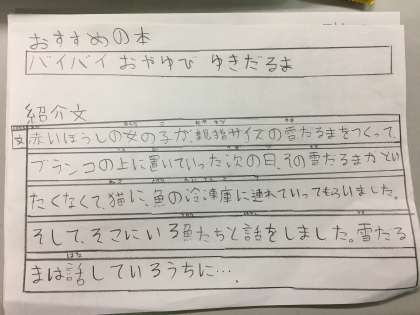 おすすめの本
バイバイ おやゆび ゆきだるま
紹介文
赤いぼうしの女の子が、親指サイズの雪だるまをつくって、
ブランコの上に置いていった次の日、その雪だるまがとい
たくなくて、猫に、魚の冷凍庫に連れていってもらいました。
そして、そこにいる魚たちと話をしました。雪だる
まは話しているうちに…。